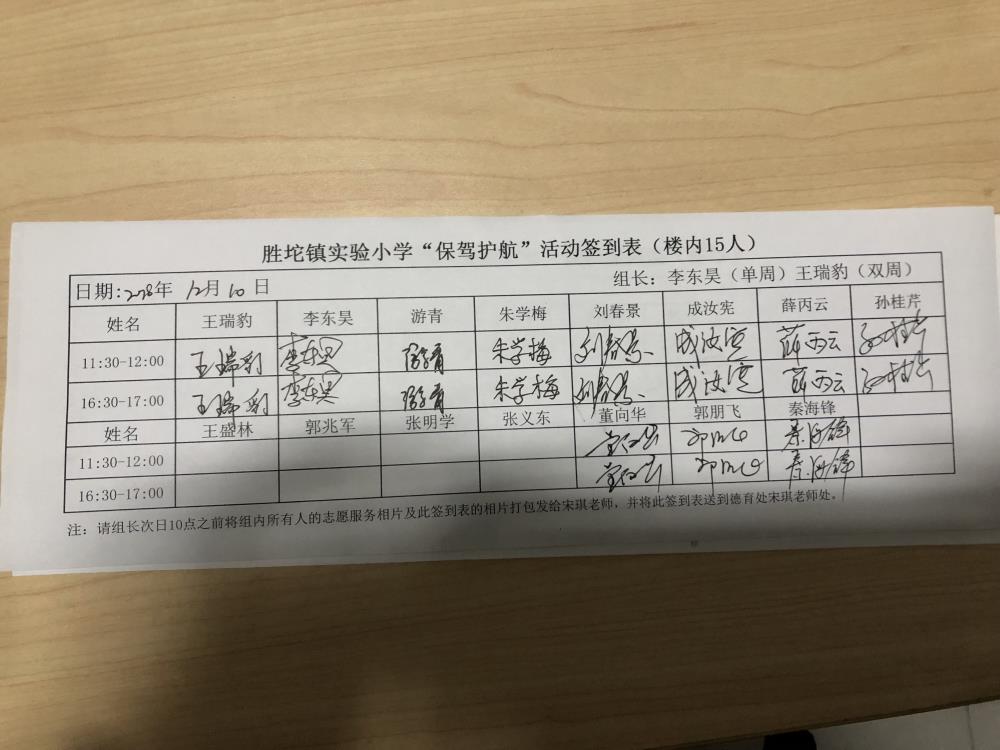 胜坨镇实验小学“保驾护航”活动签到表（楼内15人）
日期:2018年 12月 10 日 组长：李东昊（单周）王瑞豹（双周）
姓名 王瑞豹 李东昊 游青 朱学梅 刘春景 成汝宪 薛丙云 孙桂芹
11:30-12:00 王瑞豹 李东昊 游青 朱学梅 刘春景 成汝宪 薛丙云 孙桂芹
16:30-17:00 王瑞豹 李东昊 游青 朱学梅 刘春景 成汝宪 薛丙云 孙桂芹
姓名 王盛林 郭兆军 张明学 张义东 董向华 郭朋飞 秦海锋
11:30-12:00 董向华 秦海锋
16:30-17:00 董向华 秦海锋
注：请组长次日10点之前将组内所有人的志愿服务相片及此签到表的相片打包发给宋琪老师，并将此签到表送到德育处宋琪老师处。